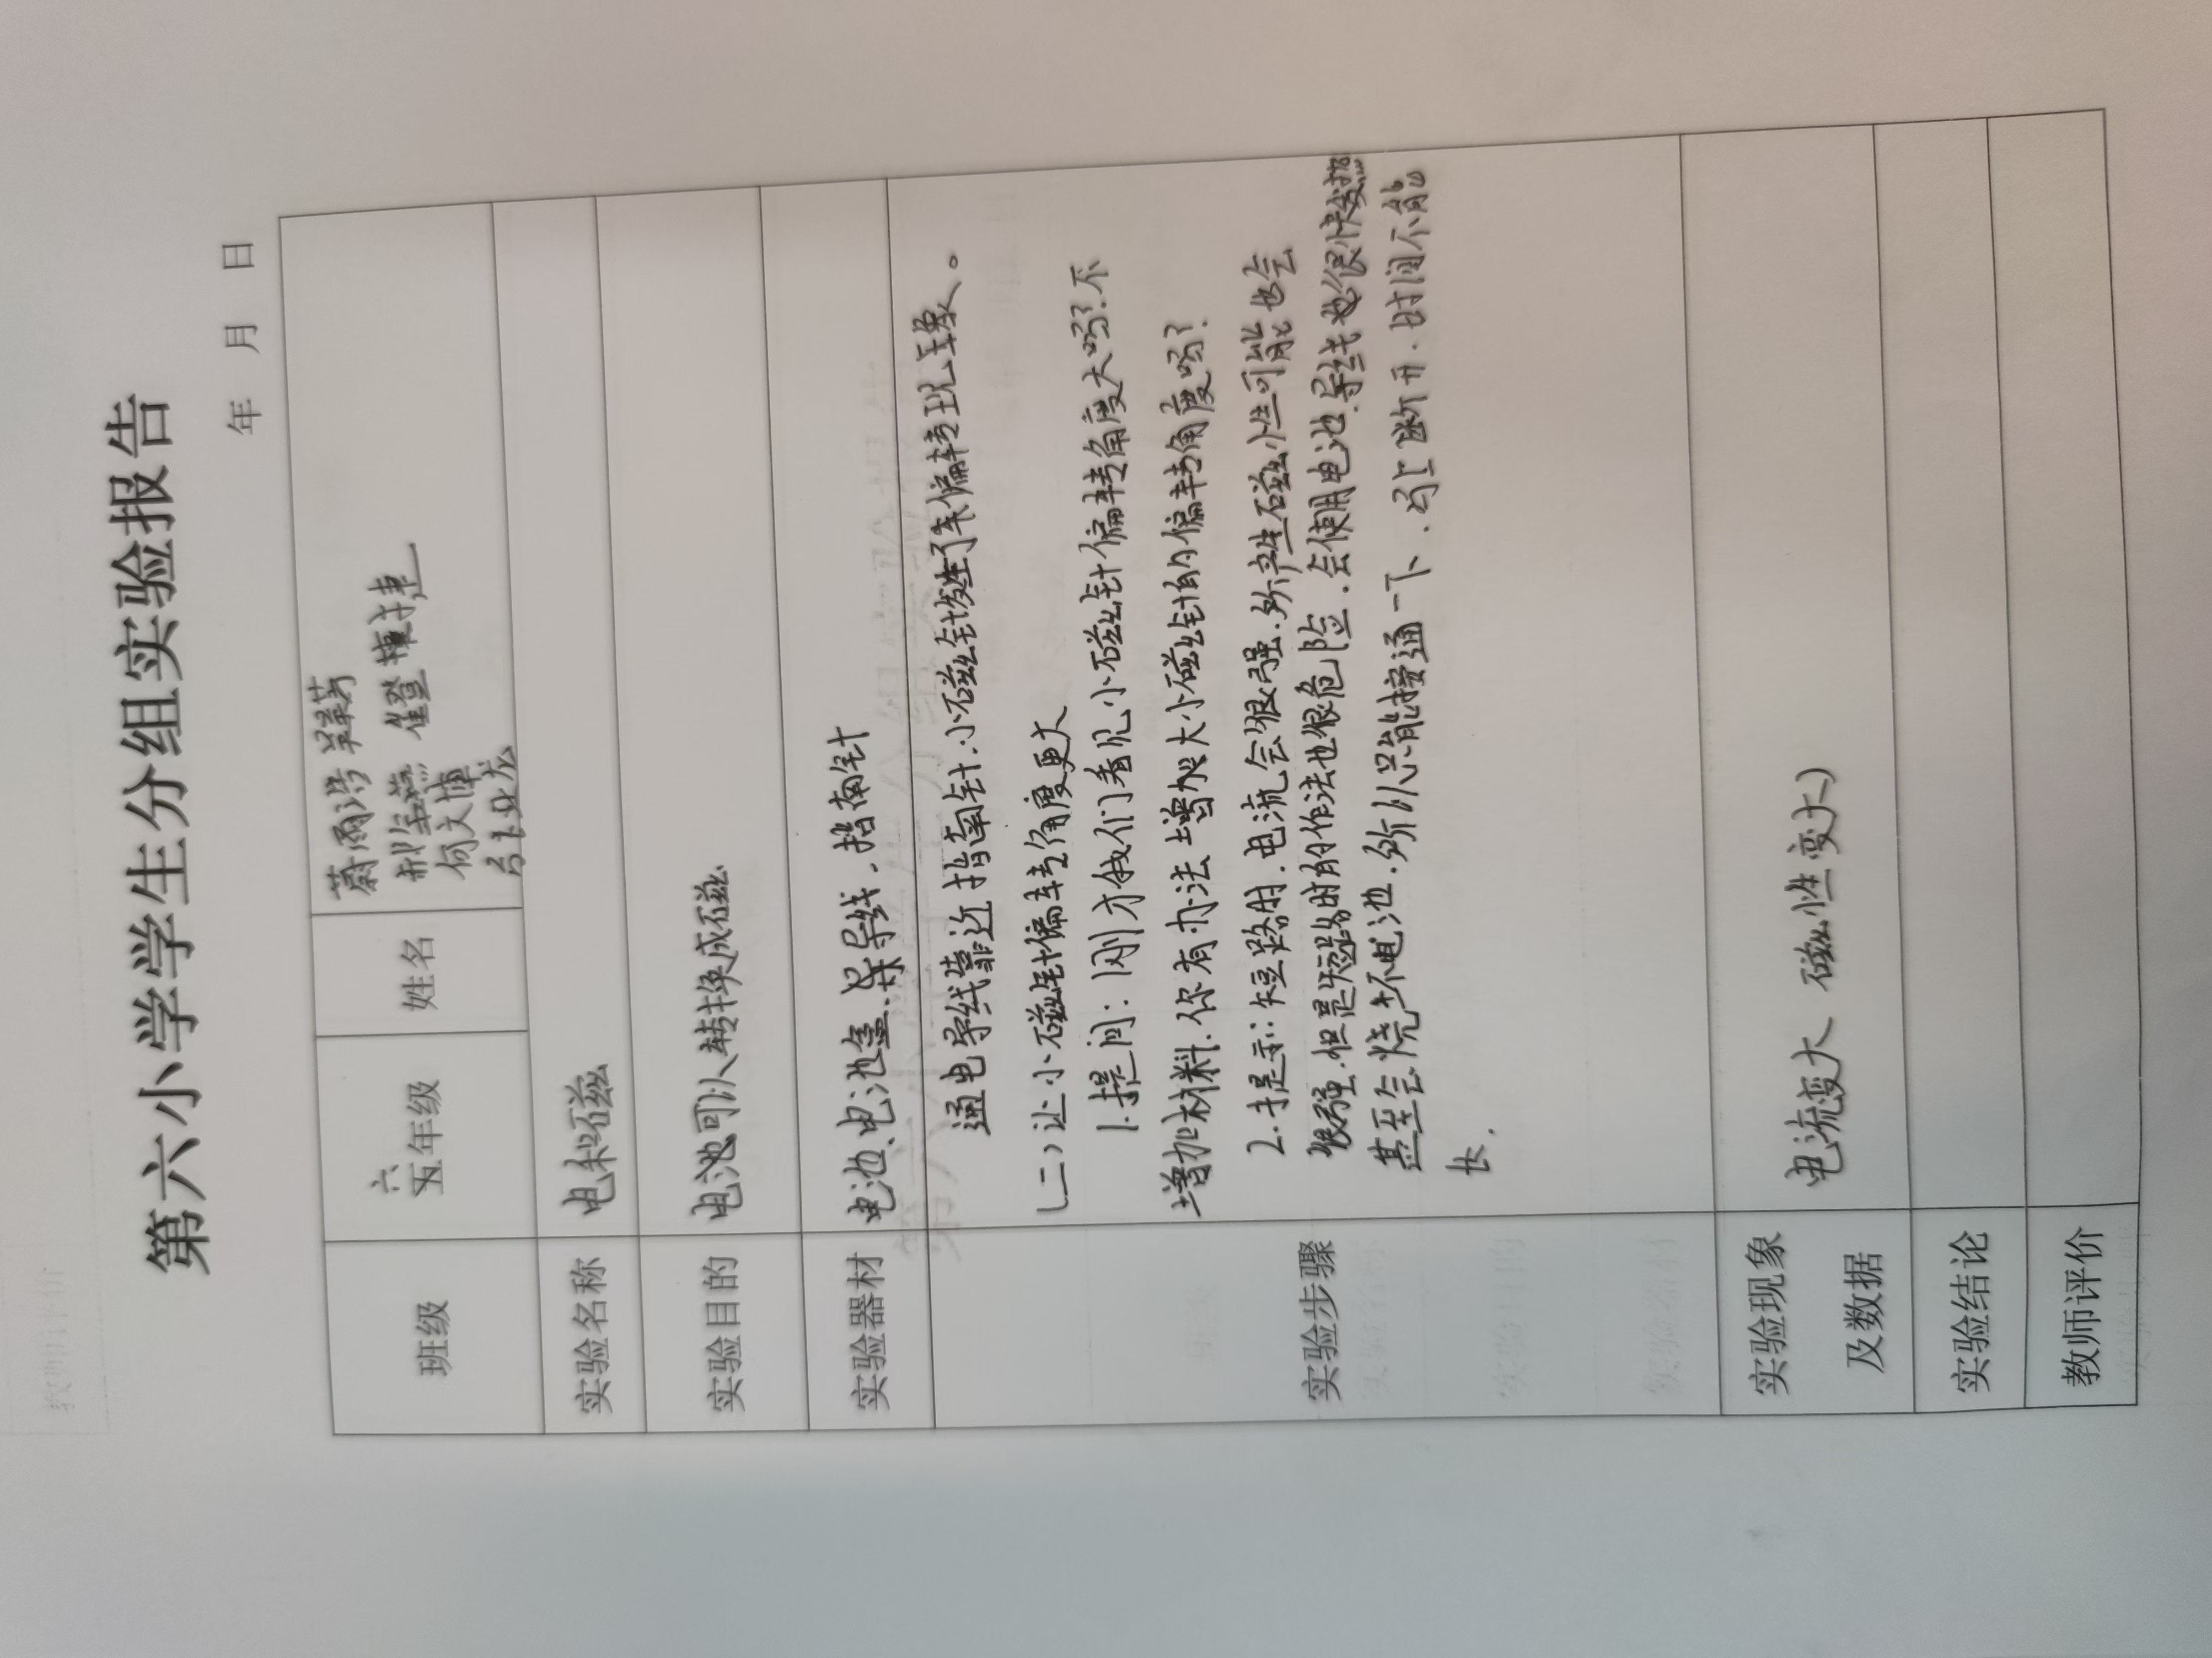 第六小学学生分组实验报告
年 月 日
班级 六五年级 姓名
雨涛
何文博
实验名称 电和磁
实验目的 电池可以转换成磁
实验器材 电池、电池盒、导线、指南针
实验步骤
通电导线靠近指南针.小磁针发生了偏转现象。
(二)让小磁针偏转角度更大
1.提问:刚才我们看见小磁针偏转角度大吗?不
增加材料.你有办法增加大小磁针的偏转角度吗?
2.提示:短路时.电流会很强.所产生磁性可能也会
很强.但是短路时的作法也很危险.会使用电池.导线也很快发热
甚至会烧坏电池.所以只能接通一下.马上断开.时间不能
长.
实验现象
及数据
电流变大 磁性变大
实验结论
教师评价